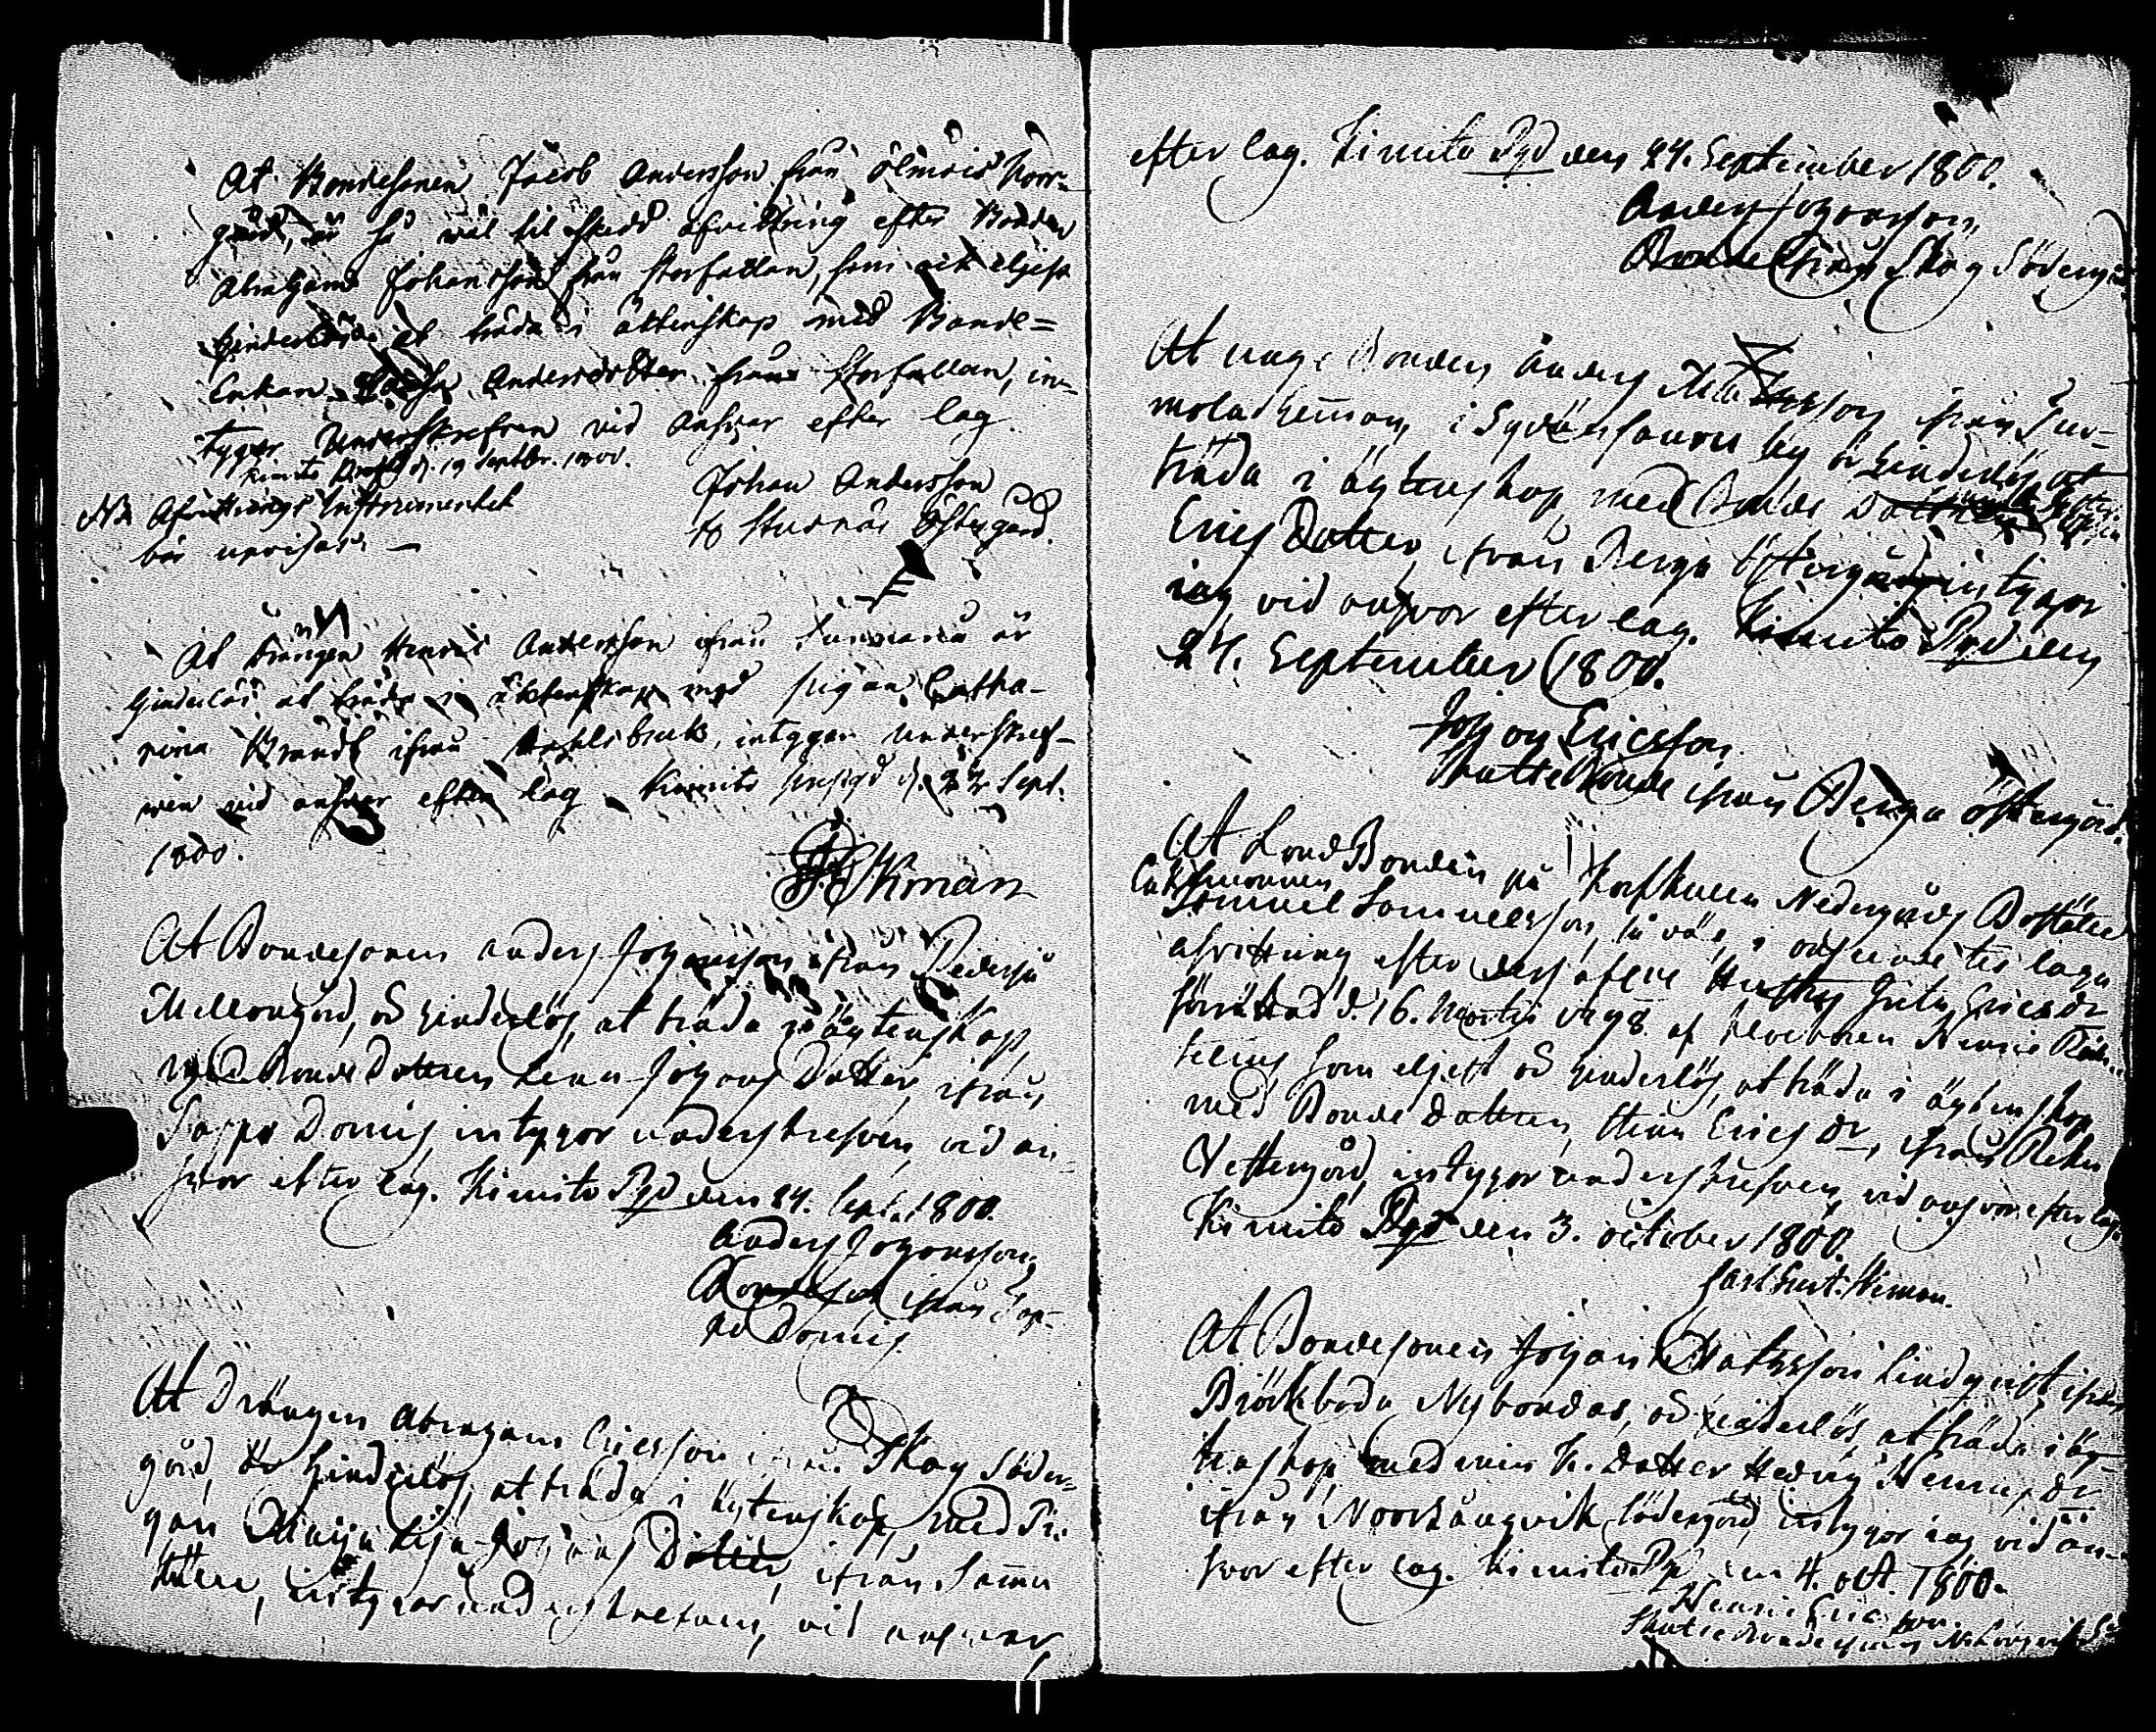 At Bondesonen Jacob Andersson från Ölmois Norr-
gård, är så väl til skedd afvittring efter Bonden
Abraham Johansson från Storfallan, som ock eljest
hinderlös at träda i äktenskap med Bonde=
Enkan Andersdotter från Storfallan, in-
tygar Underskrefven vid Answar efter lag.
Kimito d. 19 Septbr. 1800.
Johan Andersson
Östergård.
NB Afvittrings Instrumentet
bör upvisas. —
At Drängen Henric Andersson ifrån är
hinderlös at träda i äktenskap med pigan Catha-
rina Brandt ifrån Dahlsbruk, intygar underskref-
wen vid answar efter lag. Kimito d. 22 Sept.
1800.
Ekman
At Bondesonen Anders Johansson ifrån Pedersjö
Mellongård, är hinderlös, at träda i ägtenskap,
med Bonde Dottren Lena Johans Dotter, ifrån
Sappo Domis intygar underskrefven, vid an-
svar efter lag. Kimito Pgd den 24. Sept. 1800.
Anders Johansson,
Bonde ifrån Sap-
po Domis.
At Drängen Abraham Ericsson ifrån Skog Söder-
gård, är hinderlös, at träda i ägtenskap, med Pi-
gan Maija Lisa Johans Dotter, ifrån samma
ställe, intygar underskrefven, vid answar,
efter lag. Kimito Pgd den 24. September 1800.
Anders Johansson,
Bonde ifrån Skog Södergå
At unge Bonden Anders ifrån
i by är hinderlös, at
träda i ägtenskap, med Bonde Dottren
Erics Dotter, ifrån Berga Östergård, intygar
iag vid answar efter lag. Kimito Pgd den
24. September 1800.
Johan Ericsson
Skatte Bonde ifrån Berga Östergård.
At LandBonden på Nedergårds Boställe
Enkemannen
Samuel Samuelsson, så väl, i anseende til laga
afvittring efter dess aflidne Hustru Ericsdr
förrättad d. 16. Martii 1798. af Henric
som eljest är hinderlös, at träda i ägtenskap
med Bonde dottren, Ericsdr, ifrån Reku
Vestergård, intygar underskrefven, vid answar efter lag.
Kimito Pgd den 3. October 1800.
Carl Gust. Ekman.
At Bondesonen Johan Mattsson Lindqvist, ifrån
Björkboda Nybondas, är hinderlös, at träda i äg-
tenskap, med min K. Dotter Hedvig Henricsdr
ifrån Norrlångvik Södergård, intygar iag vid an-
svar efter lag. Kimito Pgd den 4. Oct. 1800.
Henric Ericsson.
Skatte Bonde ifrån N:Långvik